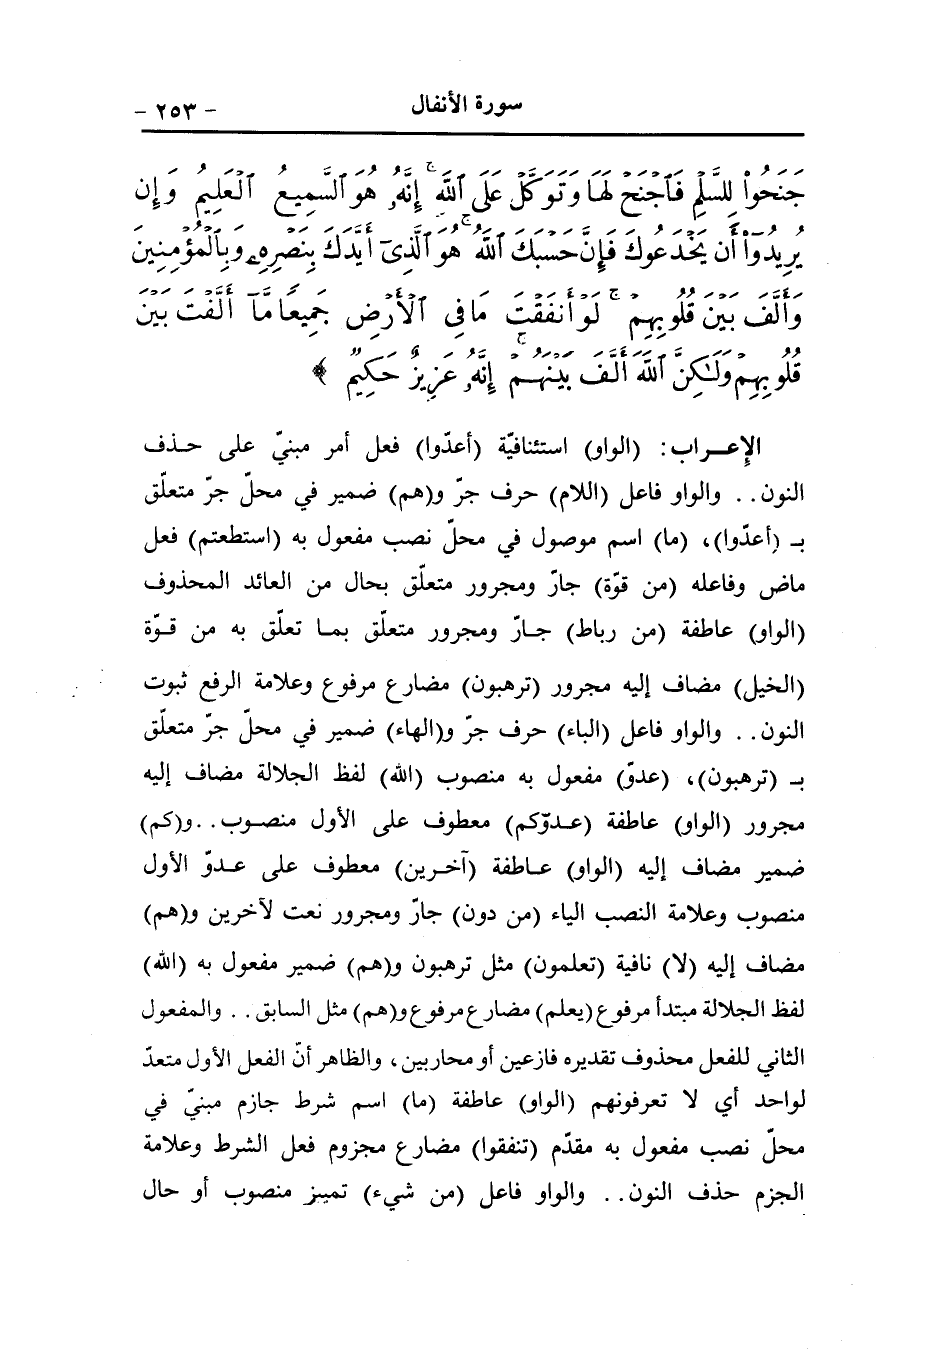 سورة الأنفال - ٢٥٣ -
جَنَحُوا۟ لِلسَّلْمِ فَٱجْنَحْ لَهَا وَتَوَكَّلْ عَلَى ٱللَّهِ ۚ إِنَّهُۥ هُوَ ٱلسَّمِيعُ ٱلْعَلِيمُ وَإِن
يُرِيدُوٓا۟ أَن يَخْدَعُوكَ فَإِنَّ حَسْبَكَ ٱللَّهُ ۚ هُوَ ٱلَّذِىٓ أَيَّدَكَ بِنَصْرِهِۦ وَبِٱلْمُؤْمِنِينَ
وَأَلَّفَ بَيْنَ قُلُوبِهِمْ ۚ لَوْ أَنفَقْتَ مَا فِى ٱلْأَرْضِ جَمِيعًا مَّآ أَلَّفْتَ بَيْنَ
قُلُوبِهِمْ وَلَـٰكِنَّ ٱللَّهَ أَلَّفَ بَيْنَهُمْ ۚ إِنَّهُۥ عَزِيزٌ حَكِيمٌ ﴾
الإعـراب: (الواو) استئنافيّة (أعدّوا) فعل أمر مبنيّ على حذف
النون.. والواو فاعل (اللام) حرف جرّ و(هم) ضمير في محلّ جرّ متعلّق
بـ (أعدّوا)، (ما) اسم موصول في محلّ نصب مفعول به (استطعتم) فعل
ماض وفاعله (من قوّة) جارّ ومجرور متعلّق بحال من العائد المحذوف
(الواو) عاطفة (من رباط) جـارّ ومجرور متعلّق بمـا تعلّق به من قـوّة
(الخيل) مضاف إليه مجرور (ترهبون) مضارع مرفوع وعلامة الرفع ثبوت
النون.. والواو فاعل (الباء) حرف جرّ و(الهاء) ضمير في محلّ جرّ متعلّق
بـ (ترهبون)، (عدوّ) مفعول به منصوب (الله) لفظ الجلالة مضاف إليه
مجرور (الواو) عاطفة (عـدوّكم) معطوف على الأول منصـوب..و(كم)
ضمير مضاف إليه (الواو) عـاطفة (آخـرين) معطوف على عـدوّ الأول
منصوب وعلامة النصب الياء (من دون) جارّ ومجرور نعت لآخرين و(هم)
مضاف إليه (لا) نافية (تعلمون) مثل ترهبون و(هم) ضمير مفعول به (الله)
لفظ الجلالة مبتدأ مرفوع (يعلم) مضارع مرفوع و(هم) مثل السابق.. والمفعول
الثاني للفعل محذوف تقديره فازعين أو محاربين، والظاهر أنّ الفعل الأول متعدّ
لواحد أي لا تعرفونهم (الواو) عاطفة (ما) اسم شرط جازم مبنيّ في
محلّ نصب مفعول به مقدّم (تنفقوا) مضارع مجزوم فعل الشرط وعلامة
الجزم حذف النون.. والواو فاعل (من شيء) تمييز منصوب أو حال